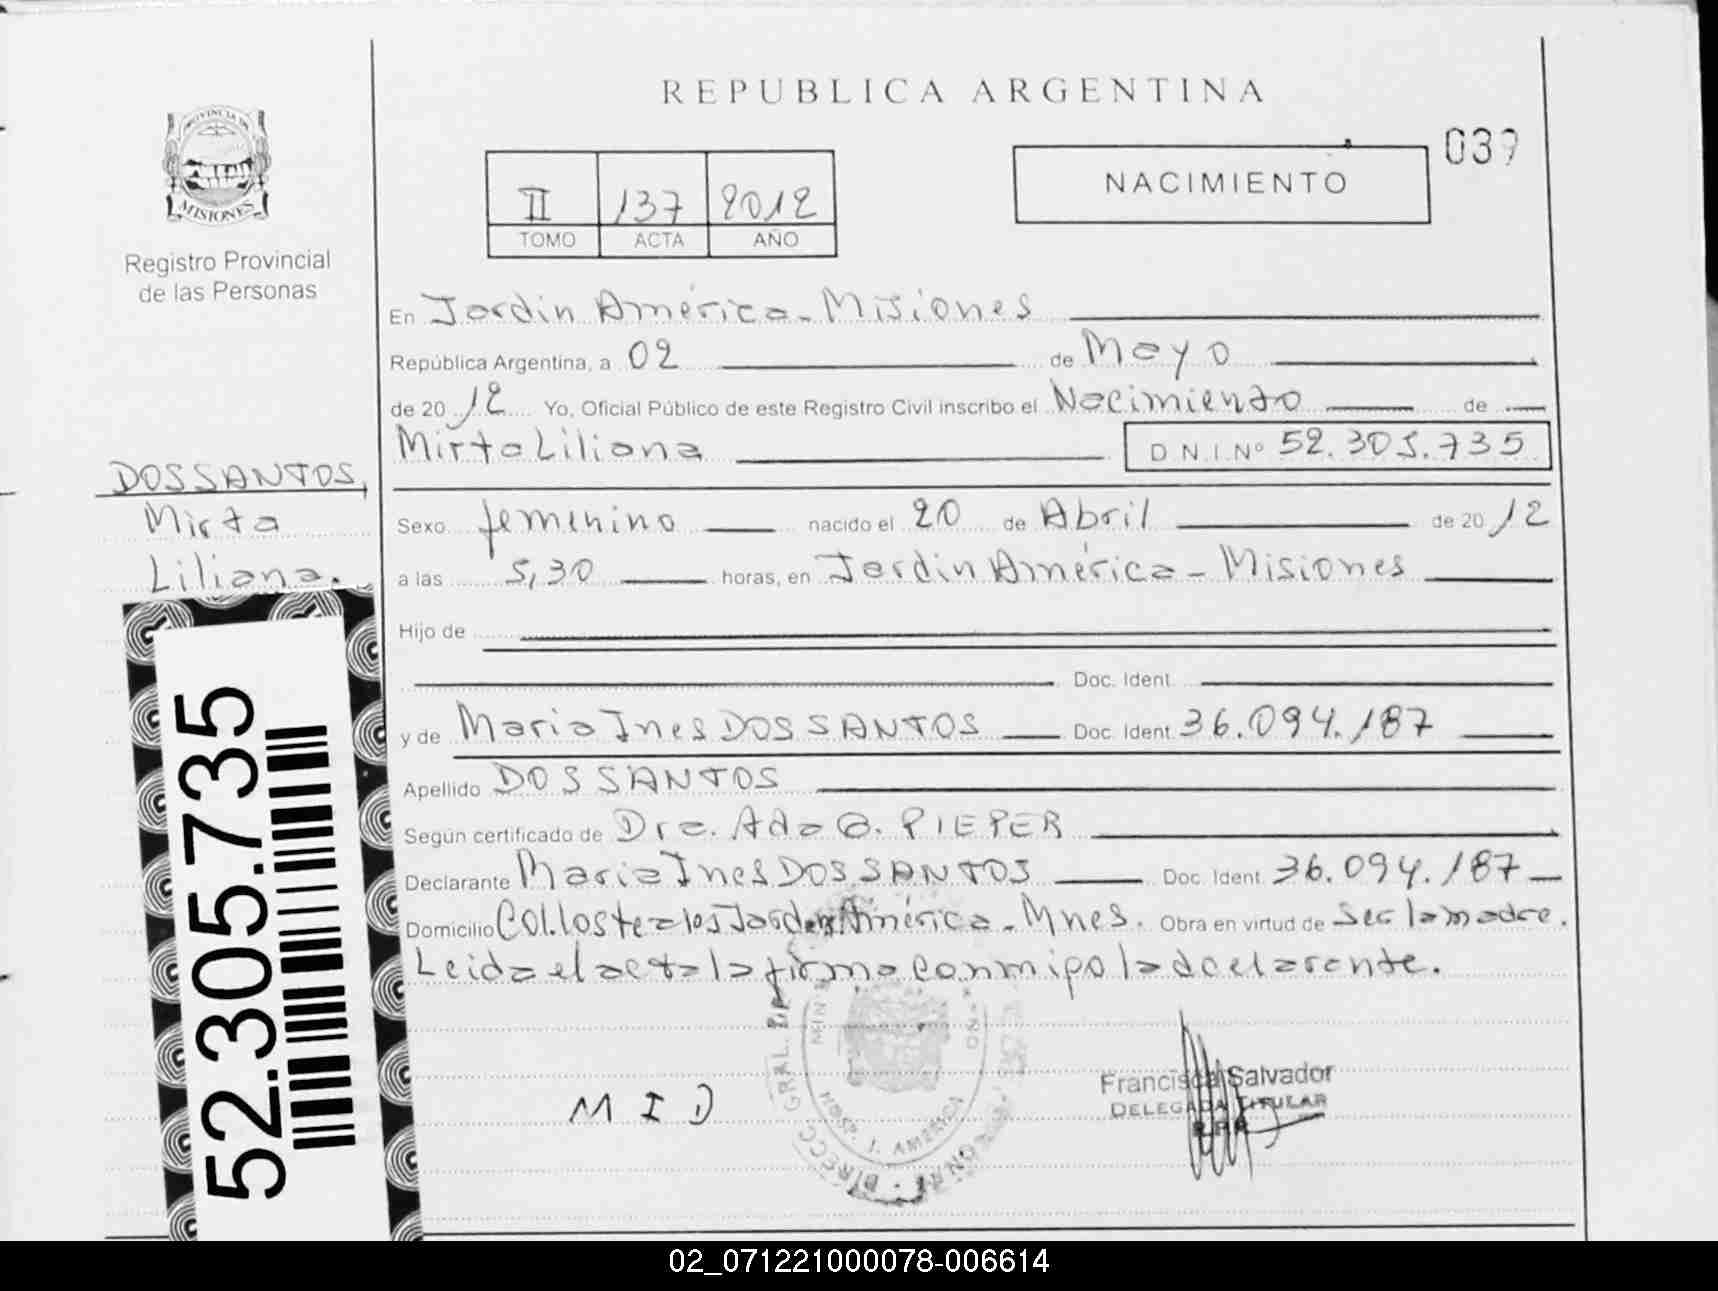 REPUBLICA ARGENTINA
PROVINCIA DE
MISIONES
Registro Provincial
de las Personas
II 137 2012
TOMO ACTA AÑO
NACIMIENTO
039
En Jardin América - Misiones
República Argentina, a 02 de Mayo
de 2012 Yo, Oficial Público de este Registro Civil inscribo el Nacimiento de
Mirta Liliana D.N.I. Nº 52.305.735
DOS SANTOS,
Mirta
Liliana.
Sexo femenino nacido el 20 de Abril de 2012
a las 5,30 horas, en Jardin América - Misiones
Hijo de
Doc. Ident.
y de Maria Ines DOS SANTOS Doc. Ident. 36.094.187
Apellido DOS SANTOS
Según certificado de Dra. Ada G. PIEPER
Declarante Maria Ines DOS SANTOS Doc. Ident. 36.094.187
Domicilio Col. los teales Jardin América - Mnes. Obra en virtud de Ser la madre.
Leida el acta la firma conmigo la declarante.
52.305.735
M I D
HOSP. J. AMERICA
Francisca Salvador
DELEGADA TITULAR
R.P.P.
02_071221000078-006614